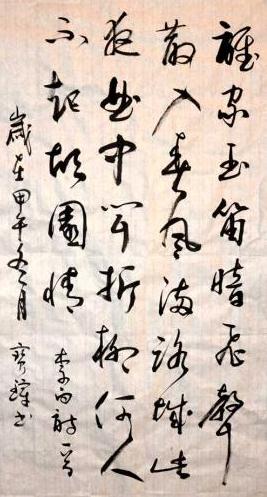 誰家玉笛暗飛聲
散入春風滿洛城此
夜曲中聞折柳何人
不起故園情
李白詩一首
歲在甲午冬月
寶書